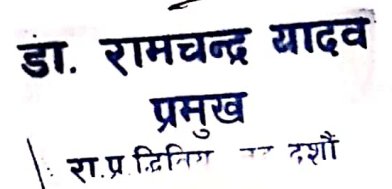 डा. रामचन्द्र यादव
प्रमुख
रा.प्र.द्वितिय दशौं